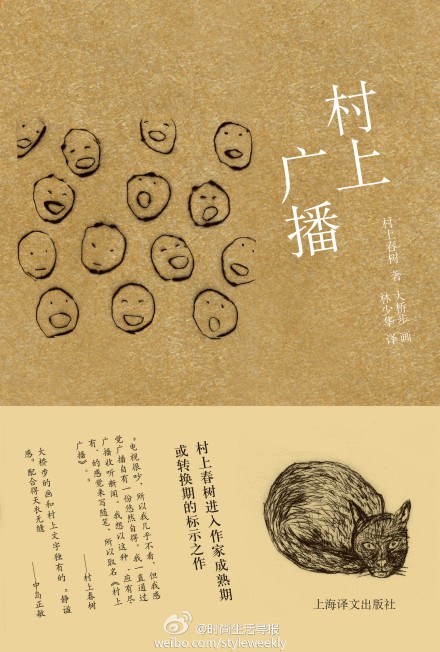 村上
广播
村上春树 著
大桥步 画
林少华 译
村上春树进入作家成熟期
或转换期的标示之作
。电视很吵，所以我几乎不看，但我感
觉广播自有一份悠然自得。我一直通过
广播收听新闻，我想以这种，应有尽
有，的感觉来写随笔，所以取名《村上
广播》。
——村上春树
大桥步的画和村上文字独有的，静谧
感，配合得天衣无缝
——中岛正敏
上海译文出版社
@时尚生活导报
weibo.com/styleweekly